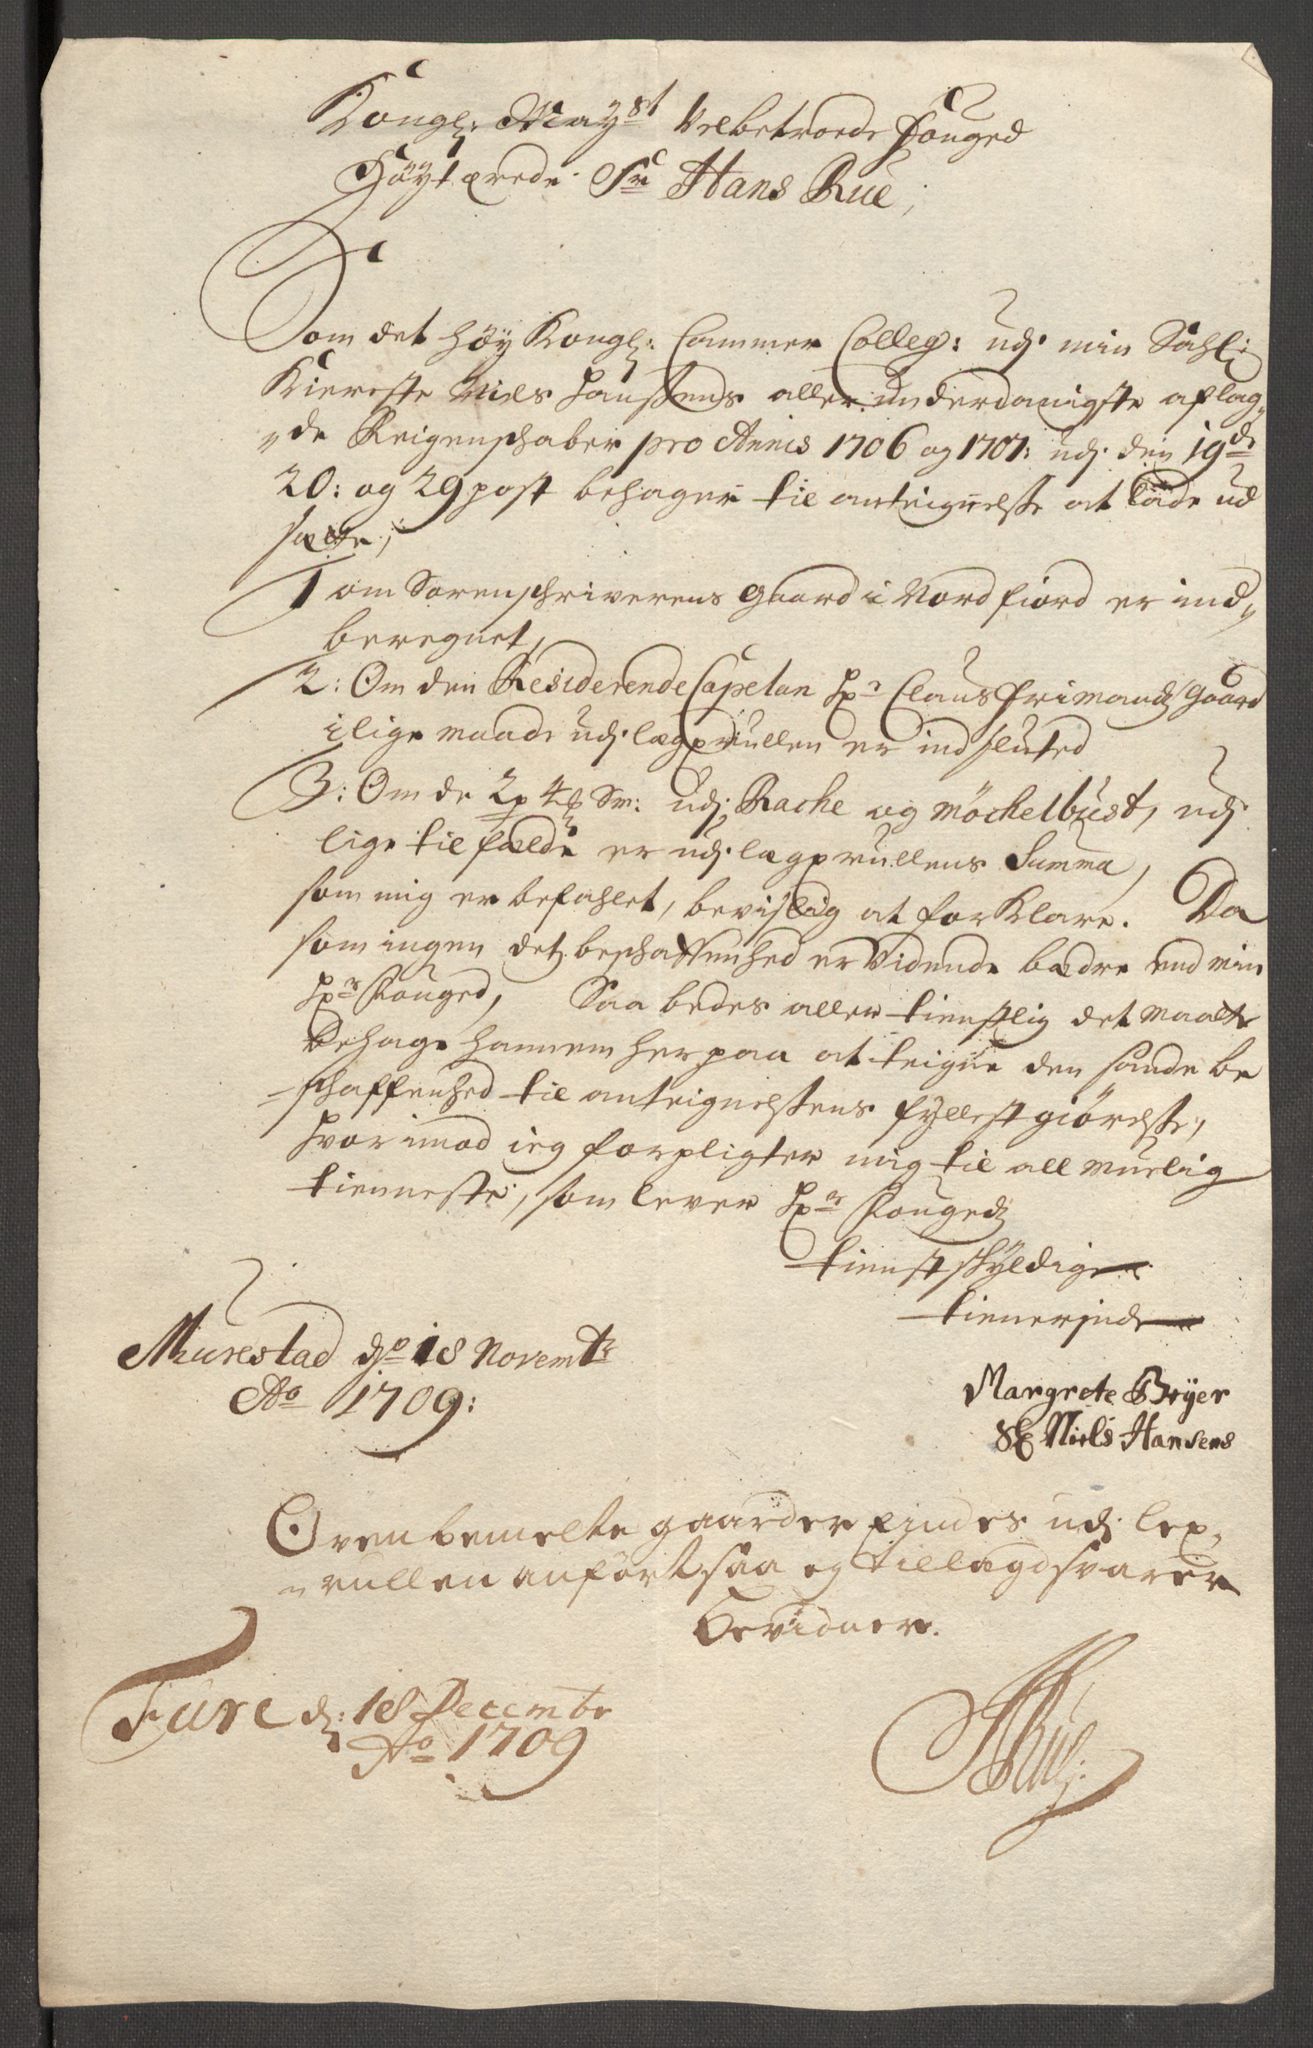 Kongl: Mayst Velbetroede Fouged
Höyt ærede Sr Hans Rue,
Som det höy Kongl: Cammer Colleg: udj min Sahl:
Kiereste Niels Hanssens allerunderdanigste aflag„
„de Reigenschaber pro Annis 1706 og 1707: udj den 19de
20: og 29 post behager til anteignelse at lade ud
sætte;
1 om Sorenschriverens gaard i Nordfiord er ind„
beregnet,
2: Om den Residerende Capelan Hr Claus Frimands gaard
i lige maade udj lægxrullen er indsluted
3: Om de 2p 4 Sm: udj Rache og Möchelbust, udj
lige tilfælde er udj lægxrullens Summa,
som mig er befahlet, bevislig at forKlare. Da
som ingen dets beschaffenhed er Vidende bædre end min
Hr Fouged, Saa bedes aller tienstlig det maatte
Behage hannem her paa at teigne den sande be
schaffenhed til anteignelsens fyllestgiörelse,
hvorimod ieg forpligter mig til all muelig
tienneste, som lever Hr Fougeds
tienstskyldige
tienerinde
Murestad dn 18 Novembr
Ao 1709:
Margrete Bryer
Sl Niels Hansens
Ovenbemelte gaarder findes udj lex„
„rullen anfört saa og tillagdsvarer
Bevidner.
Fure d: 18 Decembr
Ao 1709
HRue